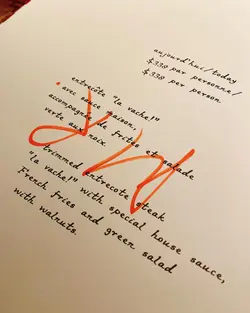 aujourd'hui/today
$338 par personne/
$338 per person
entrecôte "la vache!"
avec sauce maison,
accompagnée de frites et salade
verte aux noix.
trimmed entrecote steak
"la vache!" with special house sauce,
French fries and green salad
with walnuts.